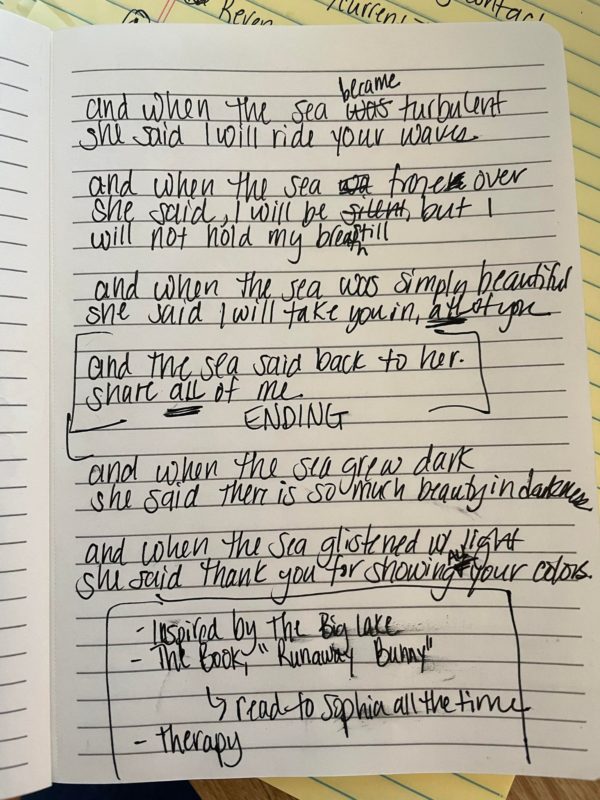 Reven
current
contac
became
and when the sea was turbulent
she said I will ride your waves.
and when the sea froze over
she said, I will be silent, but I
still
will not hold my breath
and when the sea was simply beautiful
she said I will take you in, all of you
and the sea said back to her.
share all of me
ENDING
and when the sea grew dark
she said there is so much beauty in darkness
and when the sea glistened w/ light
she said thank you for showing your colors.
- Inspired by the Big Lake
- The Book, "Runaway Bunny"
↳ read to Sophia all the time
- therapy